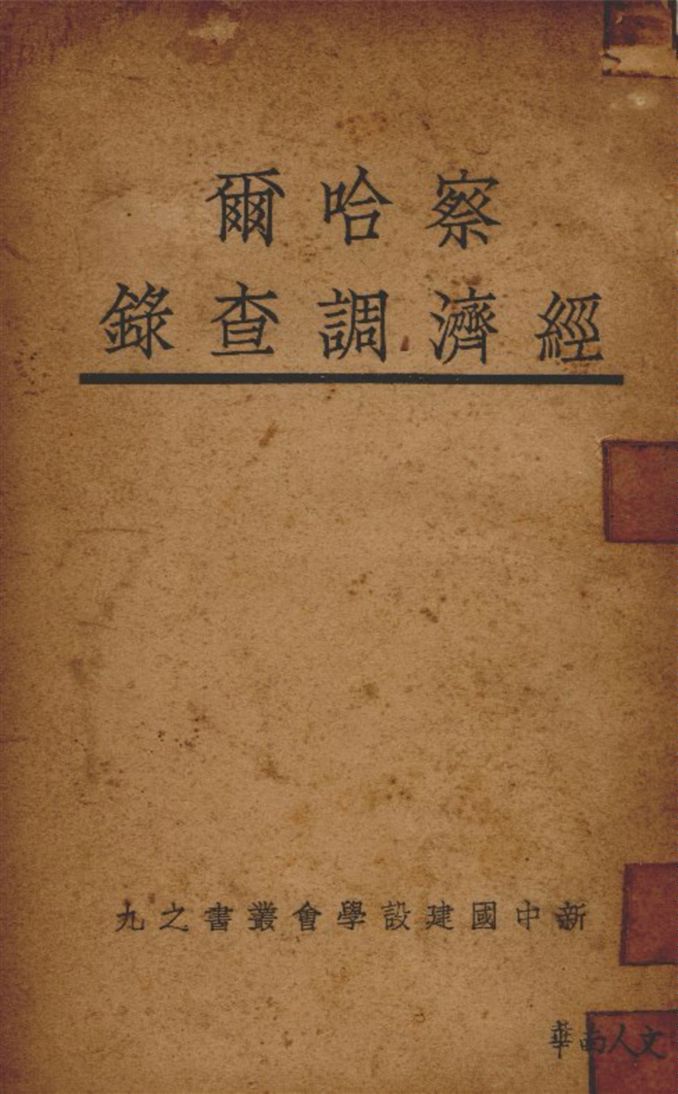 察哈爾
經濟調查錄
新中國建設學會叢書之九
文人南華